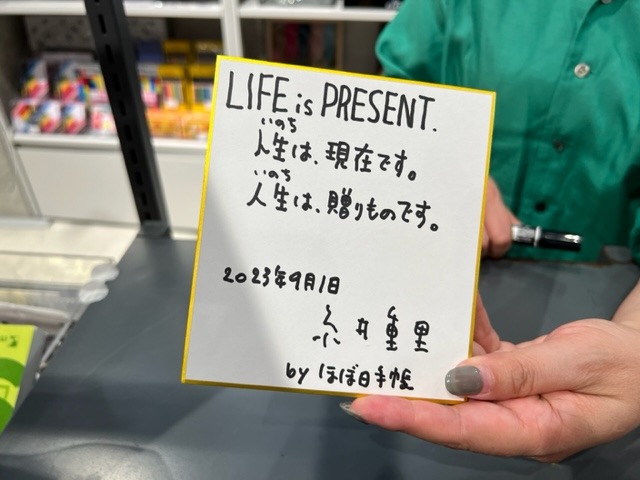 LIFE is PRESENT.
いのち
人生は、現在です。
いのち
人生は、贈りものです。
2023年9月1日
糸井重里
by ほぼ日手帳